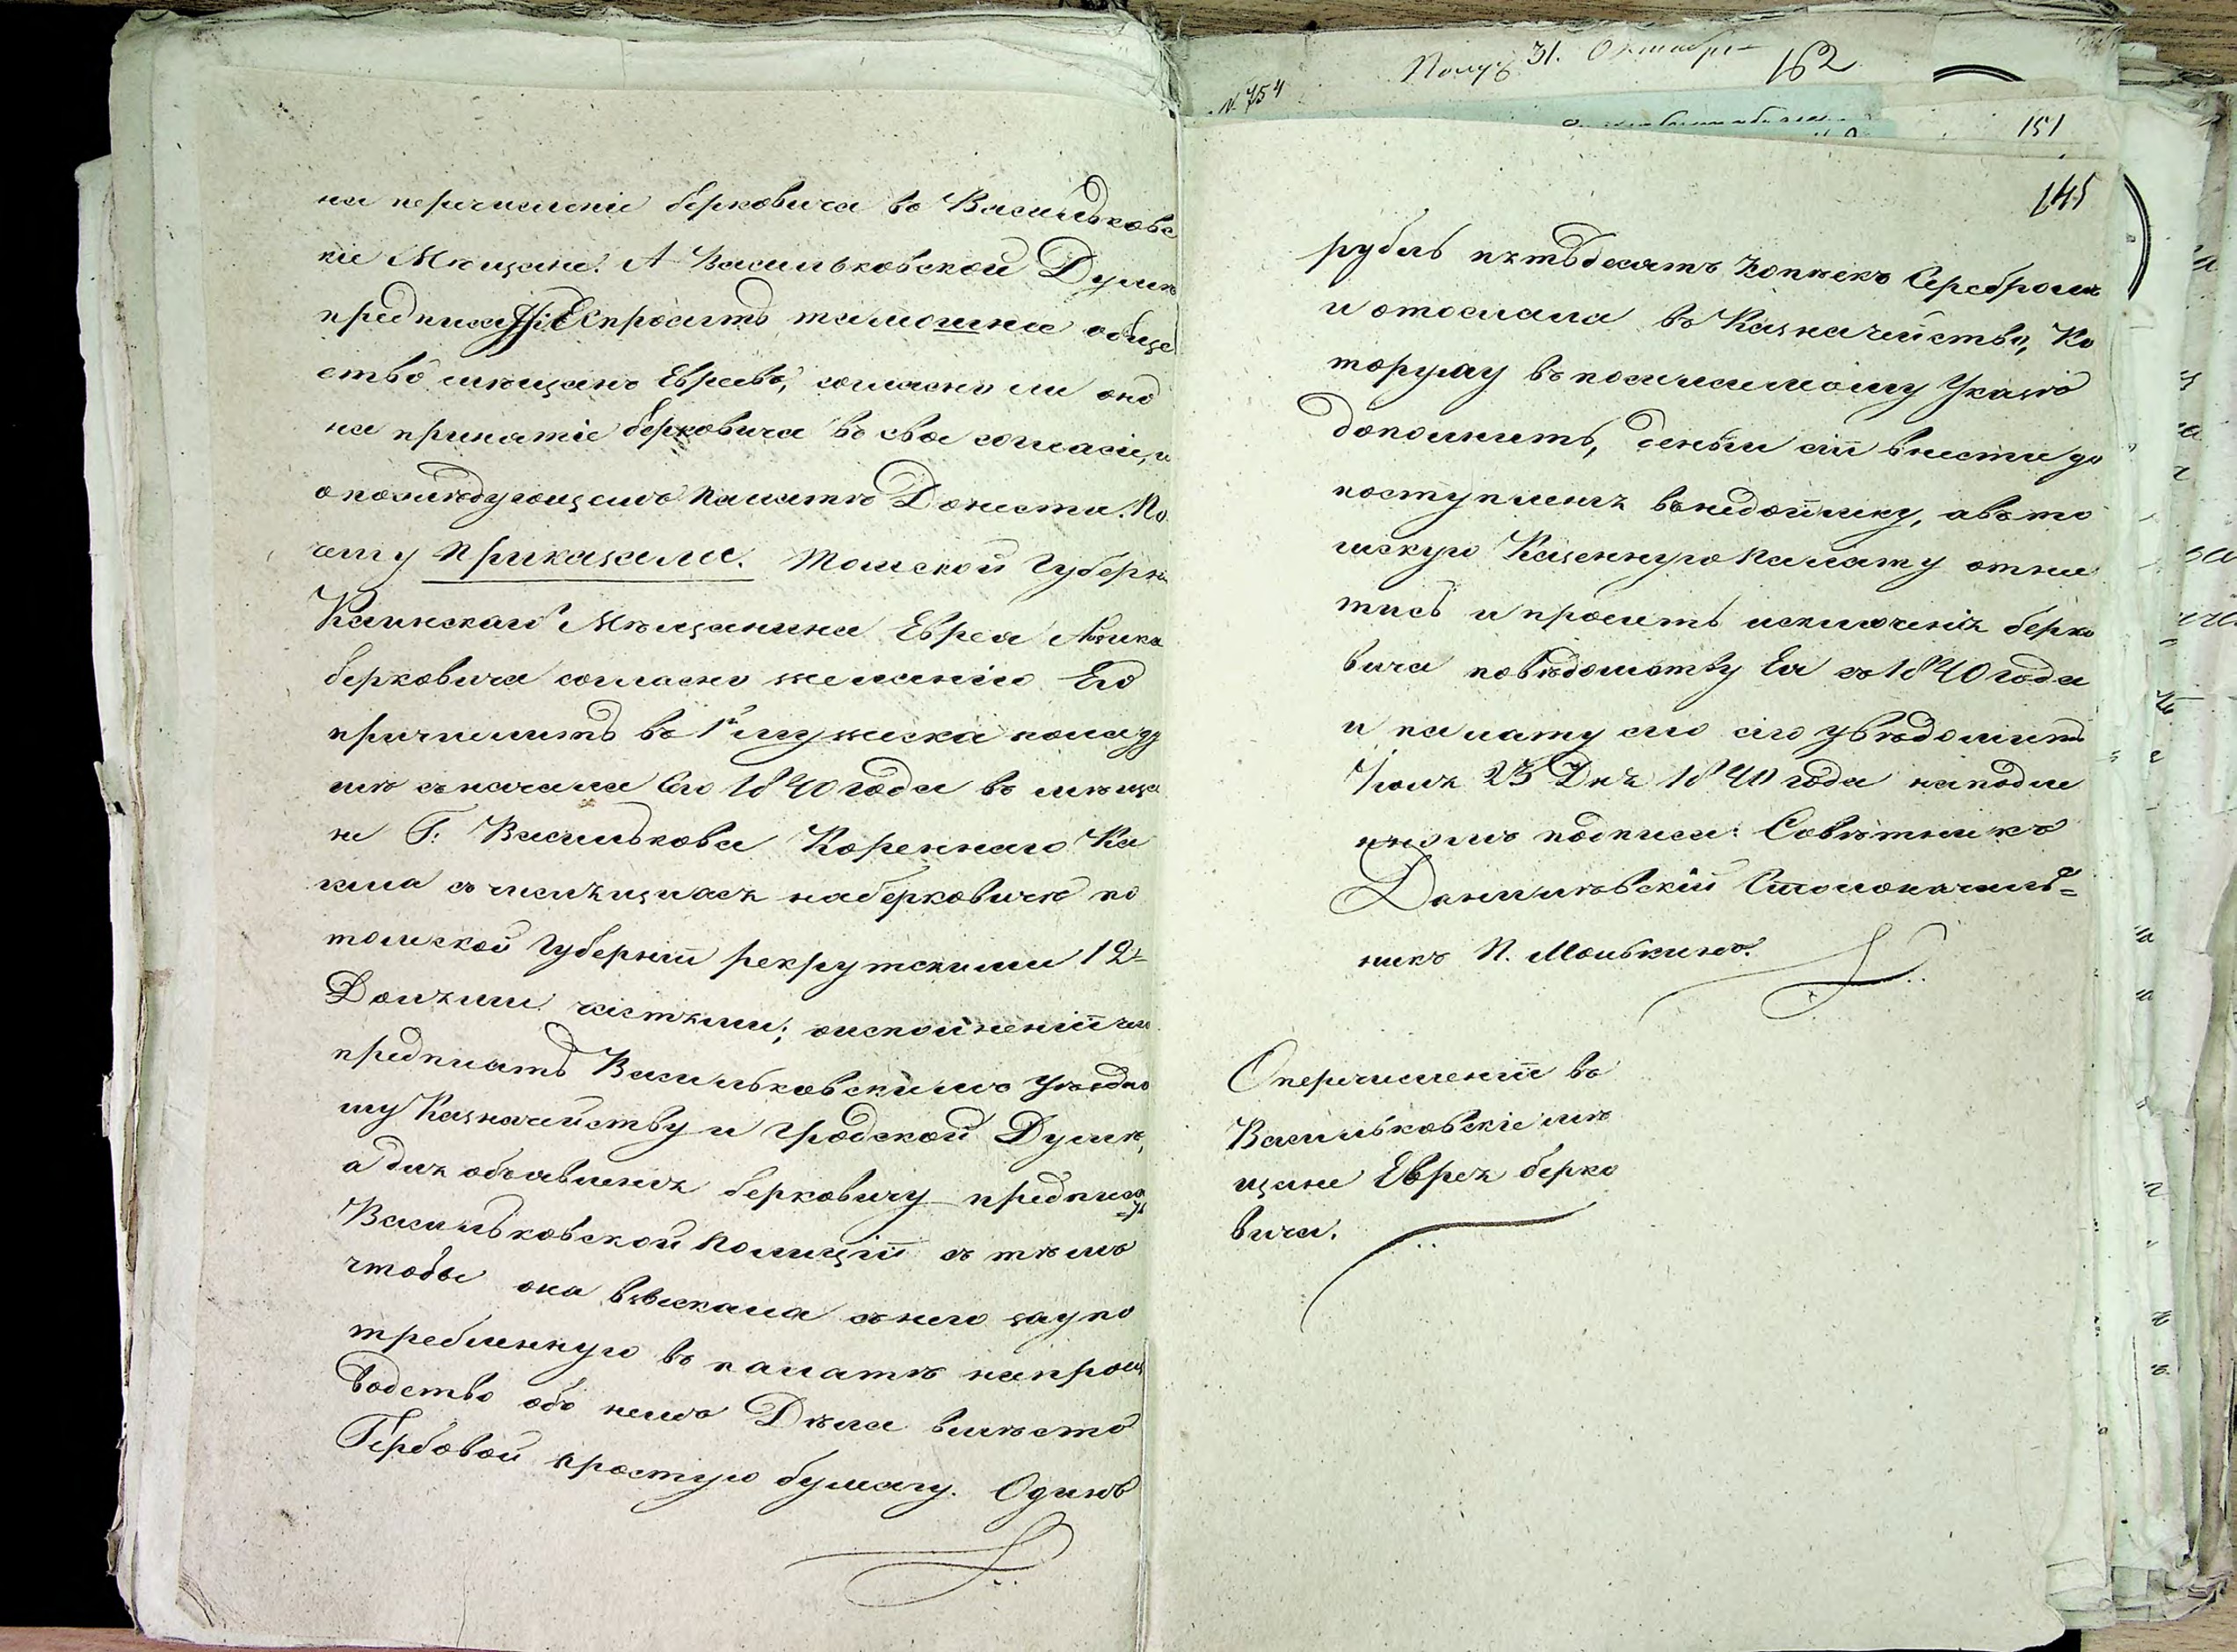 на перечисленіе берковича въ Васильковс
кіе Мѣщане. А Васильковской Думѣ
спросить тамошнее обще
ство мѣщанъ Евреевъ, согласно ли оно
на принятіе берковича въ свое согласіе, и
о послѣдующемъ Палатѣ Донести. По
чему Приказали. Томской Губерн
Каинскаго Мѣщанина Еврея Лейка
берковича согласно желанію Его
причислить въ 1й мужеска полу ду
шѣ съ начала сего 1840 года въ мѣща
не Г. Василькова Кореннаго Ка
гала съ числящіася на берковичѣ по
томской Губерніи рекрутскими 12=
Долями частями; о исполненіи чего
предписать Васильковскимъ Уѣздно
му Казначейству и Градской Думѣ,
а для объявленія берковичу предписа
ть Васильковской Полиціи съ тѣмъ
чтобы она взыскала съ него за упо
требленную въ палатѣ на произ
водство объ немъ Дѣла вмѣсто
Гербовой простую бумагу. Одинъ
Получ 31. Октября
162
N. 754
151
145
рубль пятьдесятъ копѣекъ Серебромъ
и отослала въ Казначейство, Ко
торому въ посылаемому Указѣ
дополнить, деньги сіи внести до
поступленія въ недоимку, а въ то
мскую Казенную Палату отне
тись и просить исключенія берко
вича по вѣдомству Ея съ 1840 года
и палату сію о сего увѣдомить
Іюля 23 Дня 1840 года на подли
нномъ подписи: Совѣтникъ
Данилевскій Столоначаль=
никъ П. Моськинъ.
О перечисленіи въ
Васильковскіе мѣ
щане Еврея берко
вича.